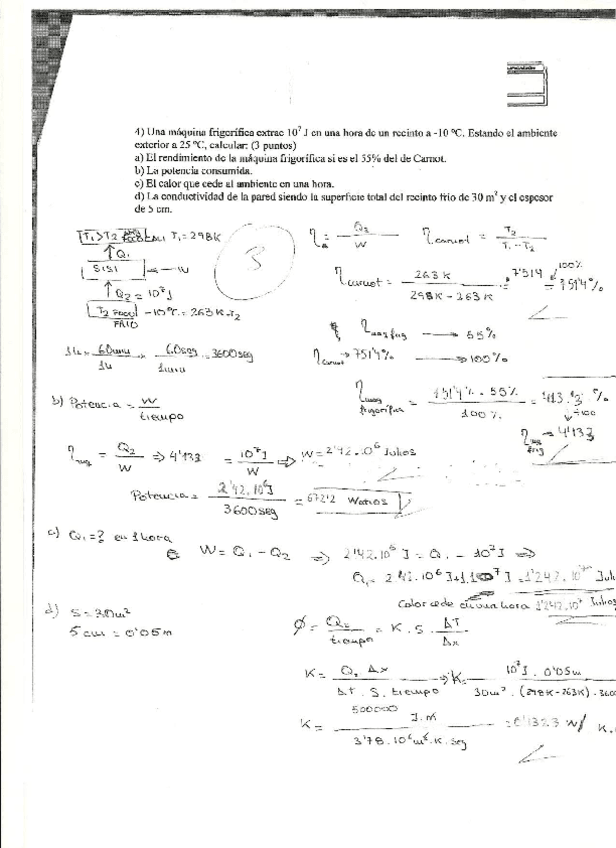 4) Una máquina frigorífica extrae 10⁷ J en una hora de un recinto a -10 ºC. Estando el ambiente
exterior a 25 ºC, calcular: (3 puntos)
a) El rendimiento de la máquina frigorífica si es el 55% del de Carnot.
b) La potencia consumida.
c) El calor que cede al ambiente en una hora.
d) La conductividad de la pared siendo la superficie total del recinto frío de 30 m² y el espesor
de 5 cm.
T₁>T₂ T₁ = 298K
Q₁
SIST W
Q₂ = 10⁷J
T₂ FOCO FRIO -10ºC = 263K = T₂
3
η = Q₂ / W
η carnot = T₂ / T₁ - T₂
η carnot = 263K / 298K - 263K = 7'514 100% = 751'4%
55%
η carnot → 751'4% → 100%
1h × 60min / 1h × 60seg / 1min = 3600seg
η maq frigorífica = 751'4% · 55% / 100% = 413'3 %
÷100
→ 4'133
b) Potencia = W / tiempo
η maq = Q₂ / W ⇒ 4'133 = 10⁷J / W ⇒ W = 2'42·10⁶ Julios
Potencia = 2'42·10⁶J / 3600seg = 672'2 Watios
c) Q₁ = ? en 1 hora
W = Q₁ - Q₂ ⇒ 2'42·10⁶ J = Q₁ - 10⁷J ⇒
Q₁ = 2'42·10⁶J + 1·10⁷J = 1'242·10⁷
Calor cede en una hora 1'242·10⁷ Julios
d) S = 30m²
5cm = 0'05m
Φ = Q₂ / tiempo = K · S · ΔT / Δx
K = Q₂ Δx / Δt · S · tiempo → K = 10⁷J · 0'05m / 30m² · (298K - 263K) ·
K = 500000 J·m / 3'78·10⁶ m² · K · seg = 0'1323 W/